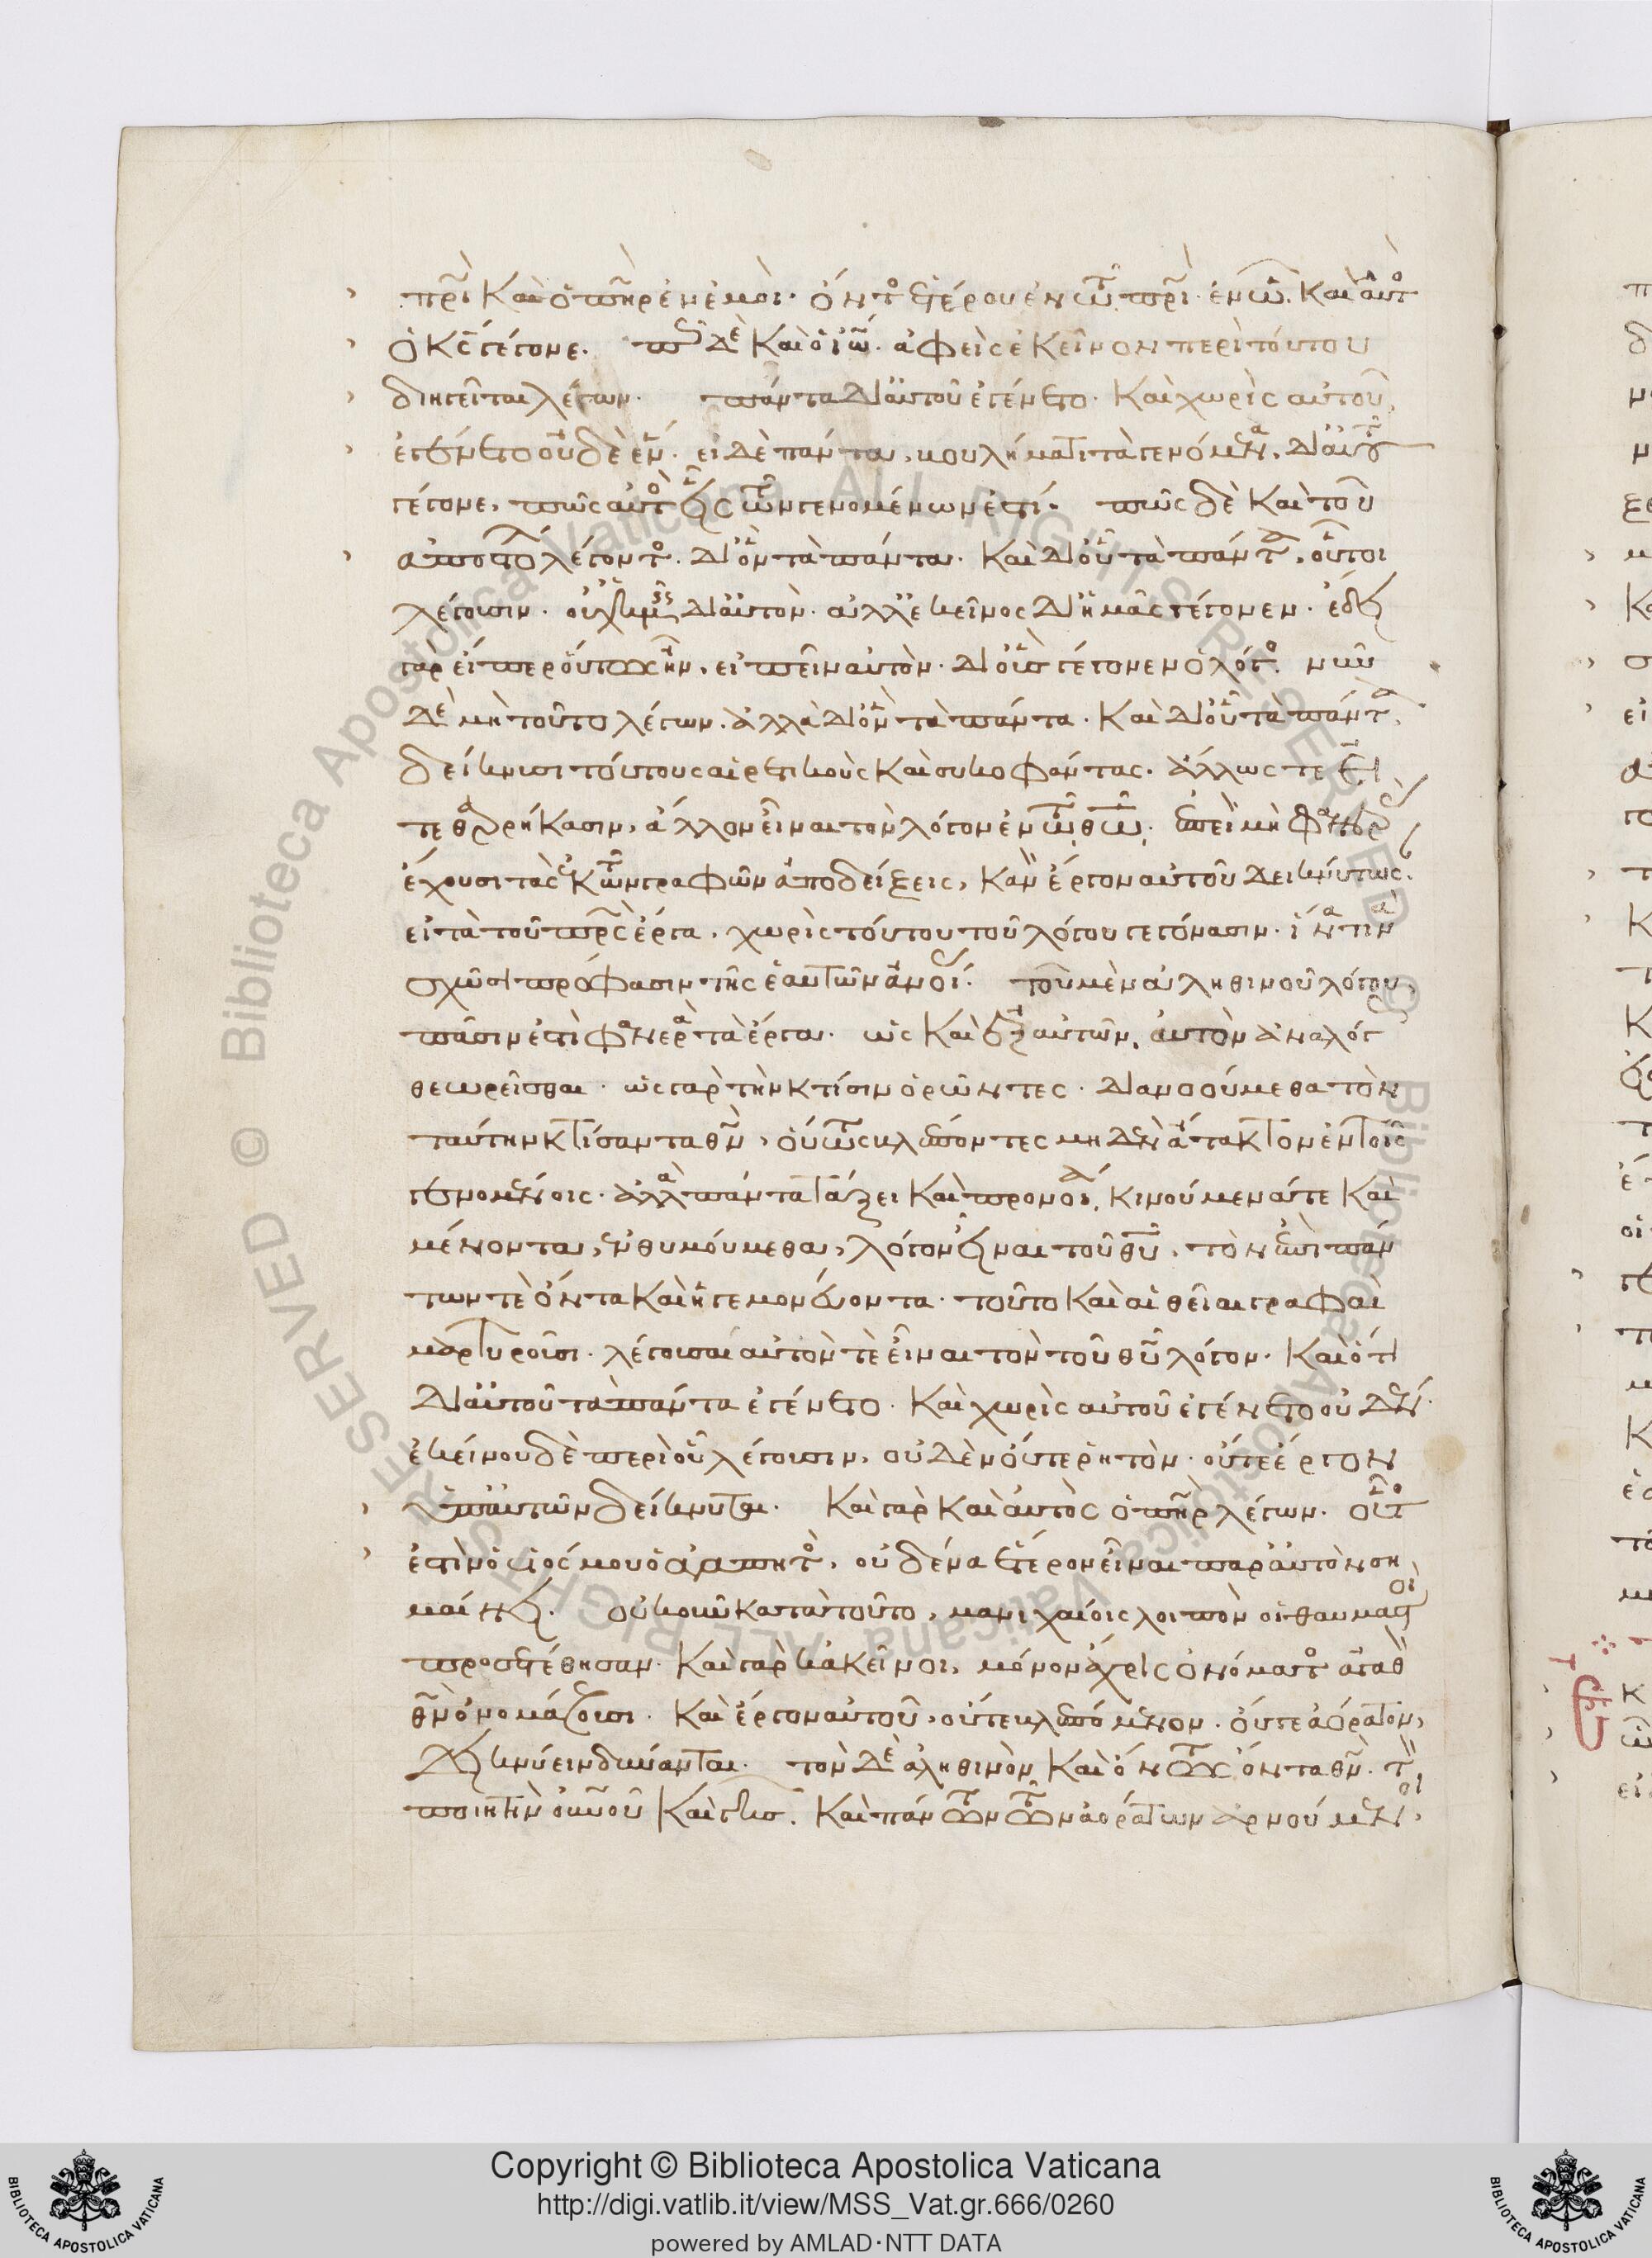 πρὶ καὶ ὁ πὴρ ἐν ἐμοί· ὄντος ἑτέρου ἐν τῶ πρὶ· ἐν ὧ καὶ αὐτὸς
ὁ κς γέγονε. πῶς δὲ καὶ ὁ ἰω· ἀφεὶς ἐκεῖνον περὶ τούτου
διηγεῖται λέγων. πάντα δι αὐτοῦ ἐγένετο· καὶ χωρὶς αὐτοῦ
ἐγένετο οὐδὲ ἕν. εἰ δὲ πάντα,
γέγονε, πῶς αὐτὸς εἷς τῶν γενομένων ἐστί. πῶς δὲ καὶ τοῦ
ἀποστόλου λέγοντος· δι ὃν τὰ πάντα· καὶ δι οὗ τὰ πάντα, οὗτοι
λέγουσιν· οὐχ ἡμᾶς δι αὐτὸν· ἀλλ ἐκεῖνος δι ἡμᾶς γέγονεν· ἔδει
γὰρ εἴπερ οὕτως ἦν, εἰπεῖν αὐτὸν· δι οὓς γέγονεν ὁ λόγος. νῦν
δὲ μὴ τοῦτο λέγων· ἀλλὰ δι ὃν τὰ πάντα· καὶ δι οὗ τὰ πάντα,
δείκνυσι τούτους αἱρετικοὺς καὶ συκοφάντας. ἄλλως τε ἐπεὶ
τεθαρρήκασιν, ἄλλον εἶναι τὸν λόγον ἐν τῶ θω. ἐπεὶ μὴ φανερὰς
ἔχουσι τὰς ἐκ τῶν γραφῶν ἀποδείξεις, κἂν ἔργον αὐτοῦ δεικνύτωσαν
εἰ τὰ τοῦ πρς ἔργα, χωρὶς τούτου τοῦ λόγου γεγόνασιν· ἵνα τινὰ
σχῶσι πρόφασιν τῆς ἑαυτῶν ἀνοίας. τοῦ μὲν ἀληθινοῦ λόγου,
πᾶσιν ἐστὶ φανερὰ τὰ ἔργα· ὡς καὶ ἐξ αὐτῶν, αὐτὸν ἀναλόγως
θεωρεῖσθαι· ὡς γὰρ τὴν κτίσιν ὁρῶντες· διανοούμεθα τὸν
ταύτην κτίσαντα θν, οὕτως βλέποντες μηδὲν ἄτακτον ἐν τοῖς
γενομένοις· ἀλλὰ πάντα τάξει καὶ προνοίᾳ, κινούμενά τε καὶ
μένοντα, ἐνθυμούμεθα, λόγον εἶναι τοῦ θυ, τὸν ἐπὶ πάν
των τε ὄντα καὶ ἡγεμονεύοντα· τοῦτο καὶ αἱ θεῖαι γραφαὶ
μαρτυροῦσι· λέγουσαι αὐτόν τε εἶναι τὸν τοῦ θυ λόγον· καὶ ὅτι
δι αὐτοῦ τὰ πάντα ἐγένετο· καὶ χωρὶς αὐτοῦ ἐγένετο οὐδέν·
ἐκείνου δὲ περὶ οὗ λέγουσιν, οὐδὲν οὔτε ῥητὸν· οὔτε ἔργον
ὑπ αὐτῶν δείκνυται. καὶ γὰρ καὶ αὐτὸς ὁ πὴρ λέγων· οὗτός
ἐστιν ὁ υἱός μου ὁ ἀγαπητός, οὐδένα ἕτερον εἶναι παρ αὐτὸν ση
μαίνει. οὐκοῦν κατὰ τοῦτο, μανιχαίοις λοιπὸν οἱ θαυμαστοὶ
προσετέθησαν· καὶ γὰρ κἀκεῖνοι, μόνον ἄχρις ὀνόματος ἀγαθὸν
θν ὀνομάζουσι· καὶ ἔργον αὐτοῦ, οὔτε βλεπόμενον· οὔτε ἀόρατον,
δεικνύειν δύνανται. τὸν δὲ ἀληθινὸν καὶ ὄντως ὄντα θν· τὸν
ποιητὴν οὐνοῦ καὶ γῆς. καὶ πάντων τῶν ἀοράτων ἀρνούμενοι,
Copyright © Biblioteca Apostolica Vaticana
http://digi.vatlib.it/view/MSS_Vat.gr.666/0260
powered by AMLAD·NTT DATA